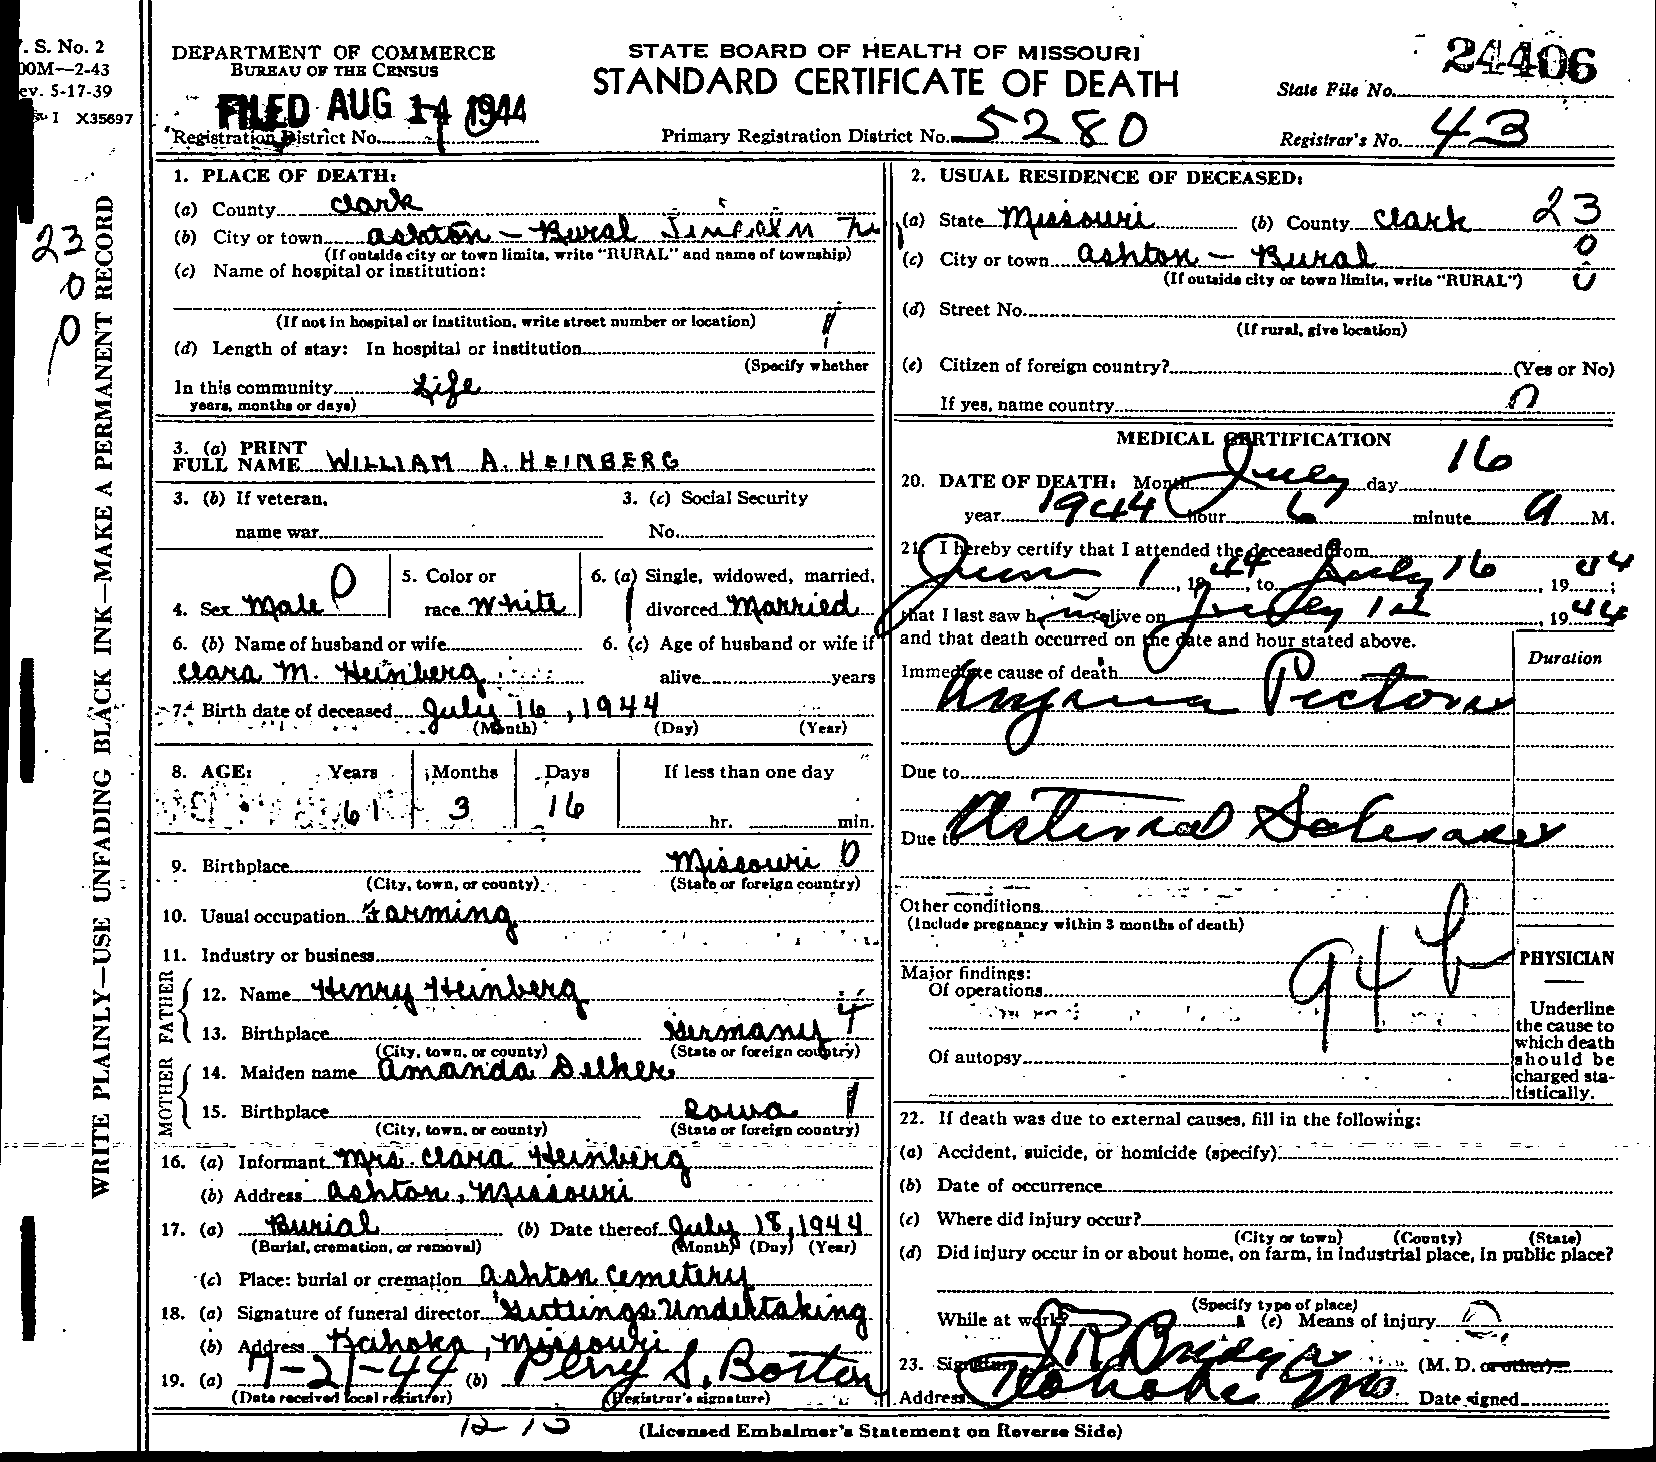 . S. No. 2
00M—2-43
ev. 5-17-39
I X35697
DEPARTMENT OF COMMERCE
BUREAU OF THE CENSUS
FILED AUG 14 1944
Registration District No.
STATE BOARD OF HEALTH OF MISSOURI
STANDARD CERTIFICATE OF DEATH
Primary Registration District No. 5280
24406
State File No.
Registrar's No. 43
WRITE PLAINLY—USE UNFADING BLACK INK—MAKE A PERMANENT RECORD
23
0
0
1. PLACE OF DEATH:
(a) County Clark
(b) City or town Ashton - Rural
(If outside city or town limits, write "RURAL" and name of township)
(c) Name of hospital or institution:
(If not in hospital or institution, write street number or location)
(d) Length of stay: In hospital or institution
(Specify whether
In this community Life
years, months or days)
3. (a) PRINT
FULL NAME WILLIAM A. HEINBERG
3. (b) If veteran,
name war
3. (c) Social Security
No.
4. Sex Male 0
5. Color or
race White
6. (a) Single, widowed, married,
divorced Married
6. (b) Name of husband or wife
Clara M. Heinberg
6. (c) Age of husband or wife if
alive years
7. Birth date of deceased July 16, 1944
(Month) (Day) (Year)
8. AGE: Years Months Days If less than one day
61 3 16 hr. min.
9. Birthplace Missouri 0
(City, town, or county) (State or foreign country)
10. Usual occupation Farming
11. Industry or business
FATHER
12. Name Henry Heinberg
13. Birthplace Germany 4
(City, town, or county) (State or foreign country)
MOTHER
14. Maiden name Amanda
15. Birthplace Iowa 1
(City, town, or county) (State or foreign country)
16. (a) Informant Mrs. Clara Heinberg
(b) Address Ashton, Missouri
17. (a) Burial (b) Date thereof July 18, 1944
(Burial, cremation, or removal) (Month) (Day) (Year)
(c) Place: burial or cremation Ashton Cemetery
18. (a) Signature of funeral director Gutting's Undertaking
(b) Address Kahoka, Missouri
19. (a) 7-21-44 (b) Perry S. Boston
(Date received local registrar) (Registrar's signature)
2. USUAL RESIDENCE OF DECEASED:
(a) State Missouri (b) County Clark 23
(c) City or town Ashton - Rural 0
(If outside city or town limits, write "RURAL") 0
(d) Street No.
(If rural, give location)
(e) Citizen of foreign country? (Yes or No)
If yes, name country 0
MEDICAL CERTIFICATION
20. DATE OF DEATH: Month July day 16
year 1944 hour 6 minute a M.
21. I hereby certify that I attended the deceased from
June 1, 1944, to July 16, 1944;
that I last saw him alive on July 12, 1944
and that death occurred on the date and hour stated above.
Immediate cause of death Duration
Angina Pectoris
Due to
Due to Arterial Sclerosis
Other conditions
(Include pregnancy within 3 months of death)
94 b
Major findings:
Of operations
Of autopsy
PHYSICIAN
Underline
the cause to
which death
should be
charged sta-
tistically.
22. If death was due to external causes, fill in the following:
(a) Accident, suicide, or homicide (specify)
(b) Date of occurrence
(c) Where did injury occur?
(City or town) (County) (State)
(d) Did injury occur in or about home, on farm, in industrial place, in public place?
(Specify type of place)
While at work? (e) Means of injury
23. Signature J R Bridges (M. D. or other)
Address Kahoka Mo Date signed
(Licensed Embalmer's Statement on Reverse Side)